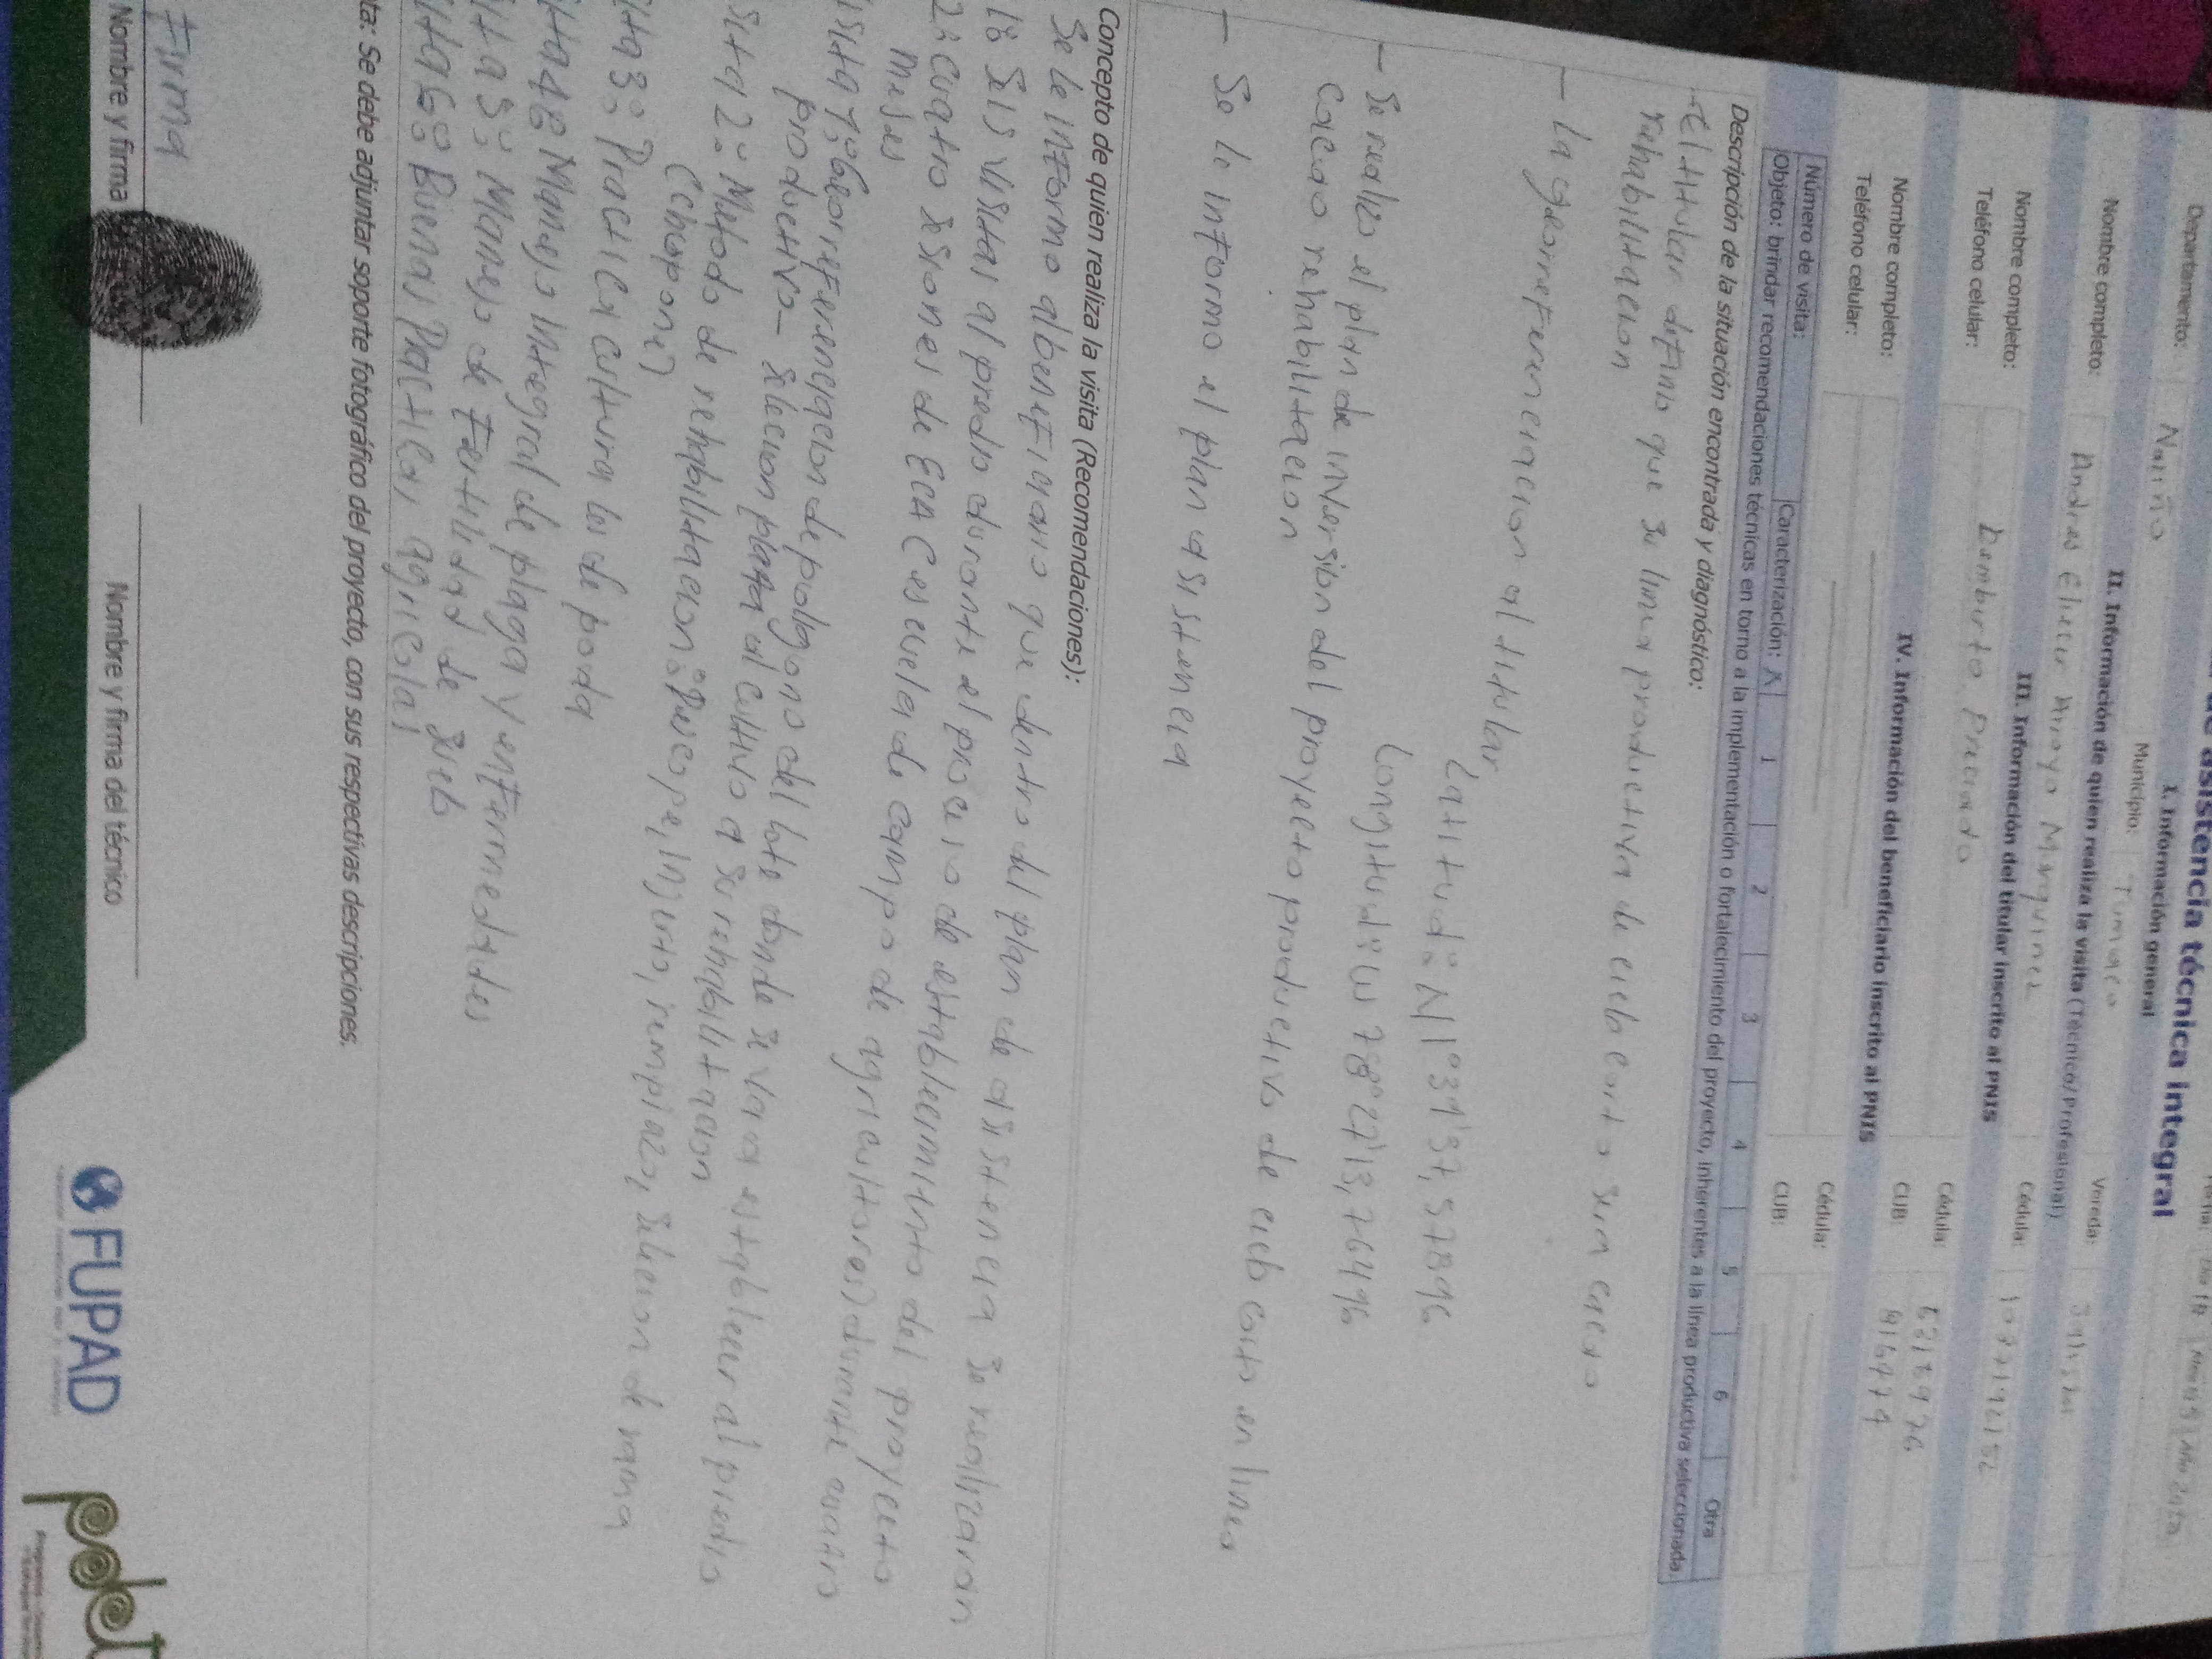 de asistencia técnica integral
I. Información general
Departamento: Nariño Municipio: Tumaco Vereda:
II. Información de quien realiza la visita (Técnico/Profesional)
Nombre completo: Andres Eliecer Arroyo Marquinez Cédula:
III. Información del titular inscrito al PNIS
Nombre completo: Preciado Cédula:
Teléfono celular: CUB:
IV. Información del beneficiario inscrito al PNIS
Nombre completo: Cédula:
Teléfono celular: CUB:
Número de visita: Caracterización: X 1 2 3 4 5 6 Otra
Objeto: brindar recomendaciones técnicas en torno a la implementación o fortalecimiento del proyecto, inherentes a la línea productiva seleccionada.
Descripción de la situación encontrada y diagnóstico:
- el titular definio que su linea productiva de ciclo corto sera cacao
rehabilitacion
- la georreferenciacion al titular
Latitud: N 1°39'37,57896
Longitud: W 78°27'13,76496
- Se realizo el plan de inversion del proyecto productivo de ciclo corto en linea
Cacao rehabilitacion
- Se le informo el plan asistencia
Concepto de quien realiza la visita (Recomendaciones):
Se le informo al beneficiario que dentro del plan de asistencia se realizaran
1: Seis visitas al predio durante el proceso de establecimiento del proyecto
2: Cuatro sesiones de ECA (escuela de campo de agricultores) durante cuatro
meses
isita 1: Georreferenciacion de poligono del lote donde se va a establecer al predio
productivo - selecion planta al cultivo a su rehabilitacion
sita 2: Metodo de rehabilitacion: Descope, injerto, rempiazo, selecion de rama
(chupone)
ita 3: Practica cultura les de poda
ita 4: Manejo integral de plaga y enfermedades
ita 5: Manejo de Fertilidad de suelo
ita 6: Buenas Practicas agricolas
ta: Se debe adjuntar soporte fotográfico del proyecto, con sus respectivas descripciones.
Firma
Nombre y firma Nombre y firma del técnico
FUPAD
pdet